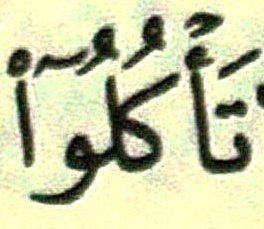 تَأْكُلُوٓا۟